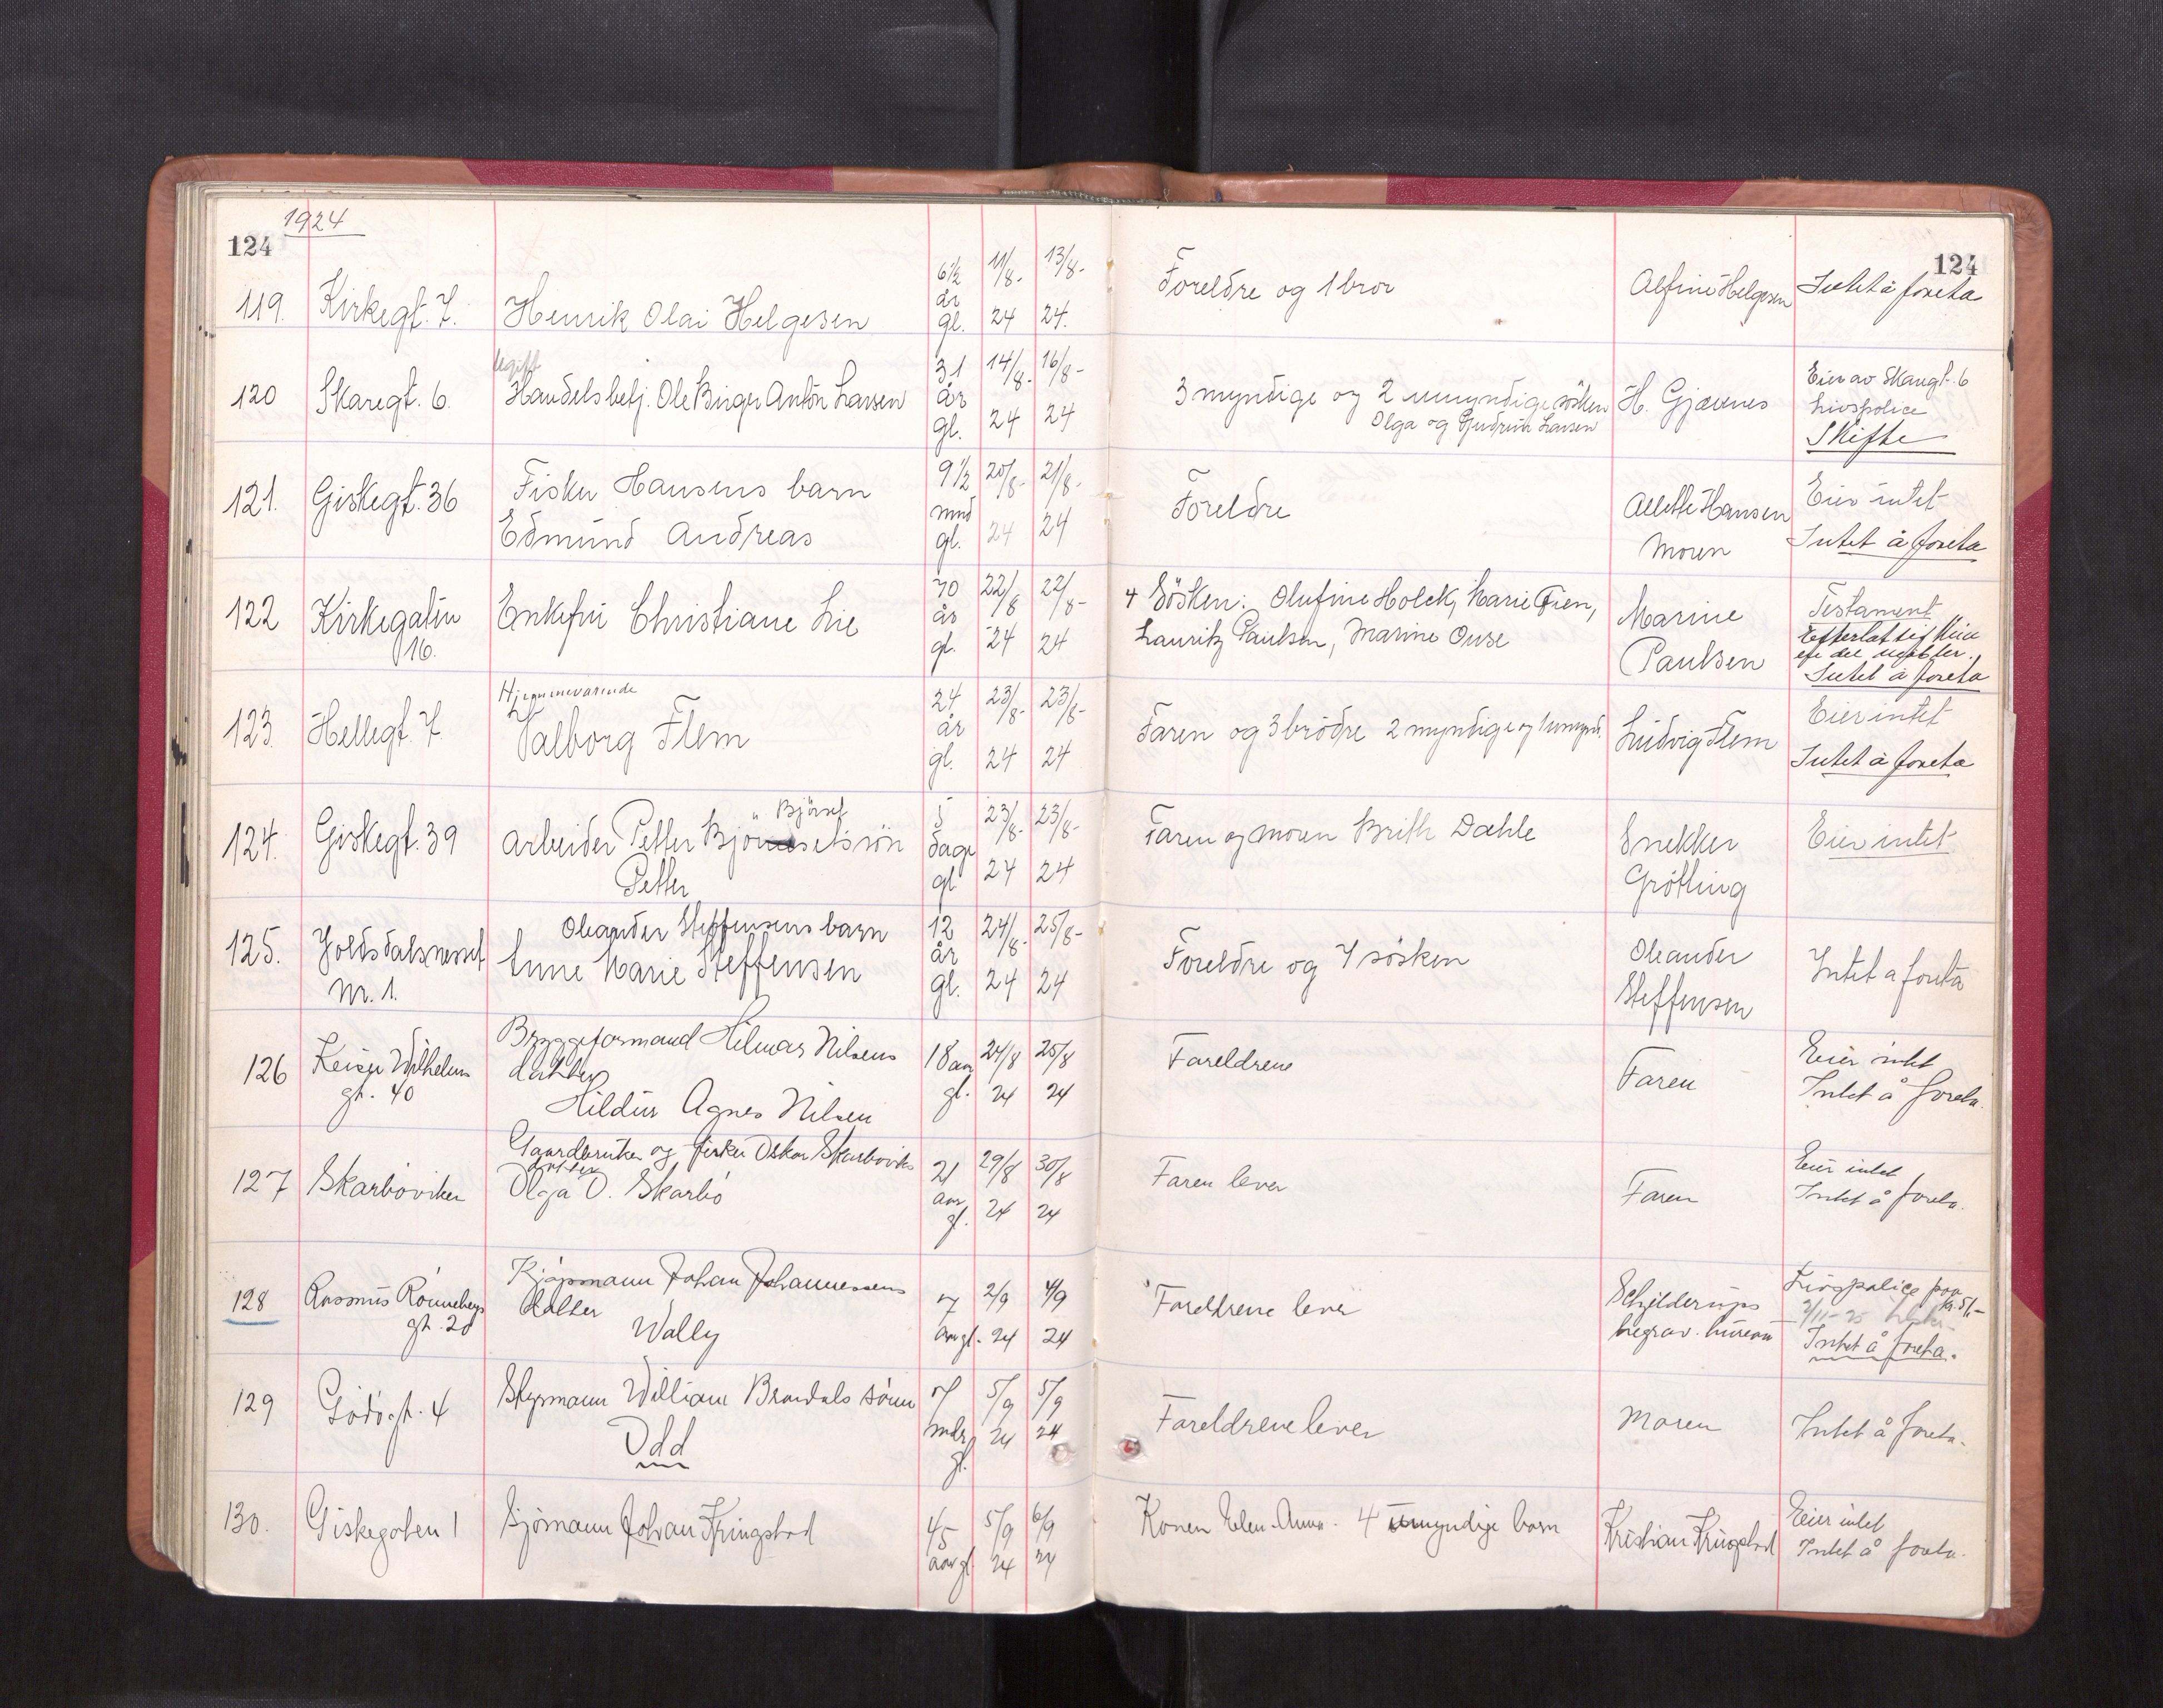 1924
124
124
119. Kirkegt. 7. Henrik Olai Helgesen 6½ år gl. 11/8-24 13/8-24. Foreldre og 1 bror Alfine Helgesen Intet å foreta
120 Skaregt. 6. Ugift
Handelsbetj. Ole Birger Anton Larsen 31 år gl. 14/8-24 16/8-24 3 myndige og 2 umyndige søsken H. Gjævnes Eier av Skaregt. 6
Olga og Gudrun Larsen Livspolice
Skifte
121. Giskegt. 36 Fisker Hansens barn 9½ mnd gl. 20/8-24 21/8-24 Foreldre Allette Hansen Eier intet
Edmund Andreas Moren Intet å foreta
122 Kirkegaten Enkefru Christiane Lie 70 år gl. 22/8-24 22/8-24 4 Søsken: Olufine Holck, Marie Fien, Marine Testament
16. Lauritz Paulsen, Marine Ouse Paulsen Efterlat sig
Intet å foreta
123. Hellegt. 7. Hjemmeværende
Valborg Flem 24 år gl. 23/8-24 23/8-24 Faren og 3 brødre 2 myndige og 1 umynd. Ludvig Flem Eier intet
Intet å foreta
124. Giskegt. 39 Bjørset
Arbeider Petter Bjørnesetsrøn 5 dage gl 23/8-24 23/8-24 Faren og moren Brith Dahle Snekker Eier intet
Petter Grøtting
125. Voldsdalsneset Oleander Steffensens barn 12 år gl. 24/8-24 25/8-24 Foreldre og 7 søsken Oleander Intet a foreta
Nr. 1. Anne Marie Steffensen Steffensen
126 Keiser Wilhelms Bryggeformand Hilmar Nilsens 18 aar gl. 24/8 24 25/8 24 Foreldrene Faren Eier intet
gt. 40 datter Intet å foreta.
Hildur Agnes Nilsen
127 Skarbøviken Gaardbruker og fisker Oskar Skarbøviks 21 aar gl. 29/8 24 30/8 24 Faren lever Faren Eier intet
datter Intet å foreta.
Olga O. Skarbø
128 Rasmus Rønnebergs Kjøpmann Johan Johannessens 7 aar gl. 2/9 24 4/9 24 Foreldrene lever Schjelderups Livspolice paa
gt. 20 datter begrav. bureau kr. 51,-
Wally 2/11-25
Intet å foreta.
129 Godøgt. 4 Styrmann William Brandals sønn 7 mdr gl. 5/9 24 5/9 24 Foreldrene lever Moren Intet å foreta.
Odd
130. Giskegaten 1 Sjømann Johan Kringstad 45 aar gl 5/9 24 6/9 24 Konen Elen Anna. 4 umyndige barn Kristian Kringstad Eier intet
Intet å foreta.